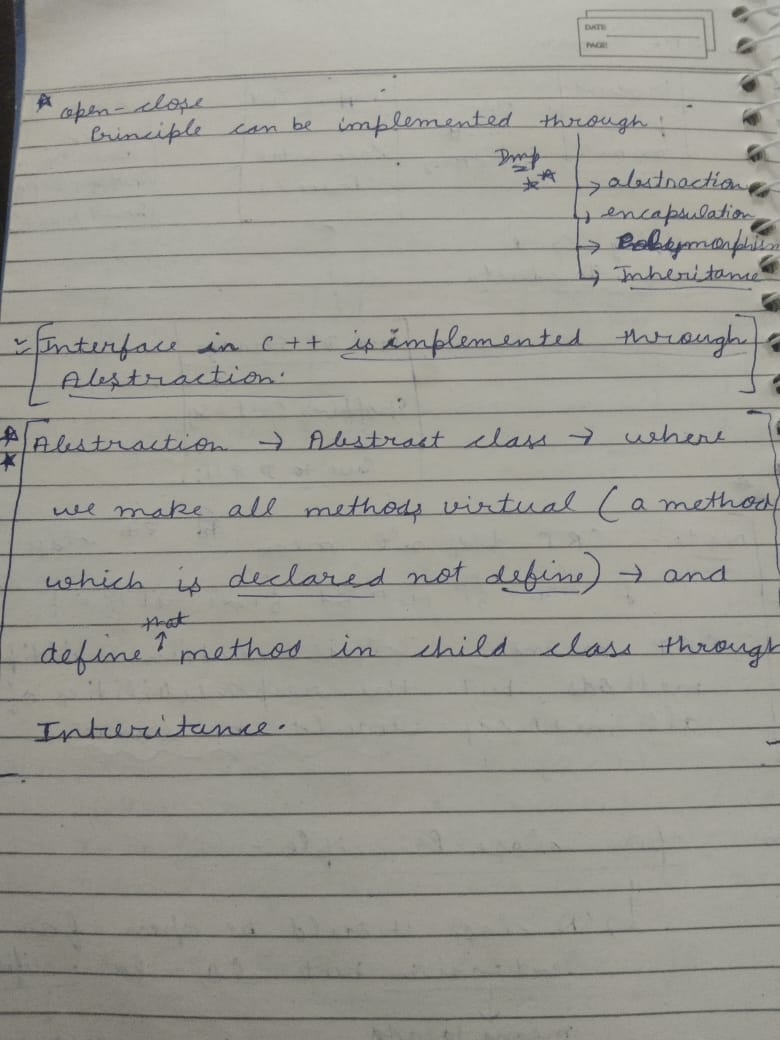 DATE
PAGE
☆ open-close
Principle can be implemented through :
Imp
☆☆
→ abstraction
→ encapsulation
→ Polymorphism
→ Inheritance
[Interface in C++ is implemented through
Abstraction.]
☆ [Abstraction → Abstract class → where
☆
we make all methods virtual ( a method
which is declared not define) → and
that
define ↑ method in child class through
Inheritance.]